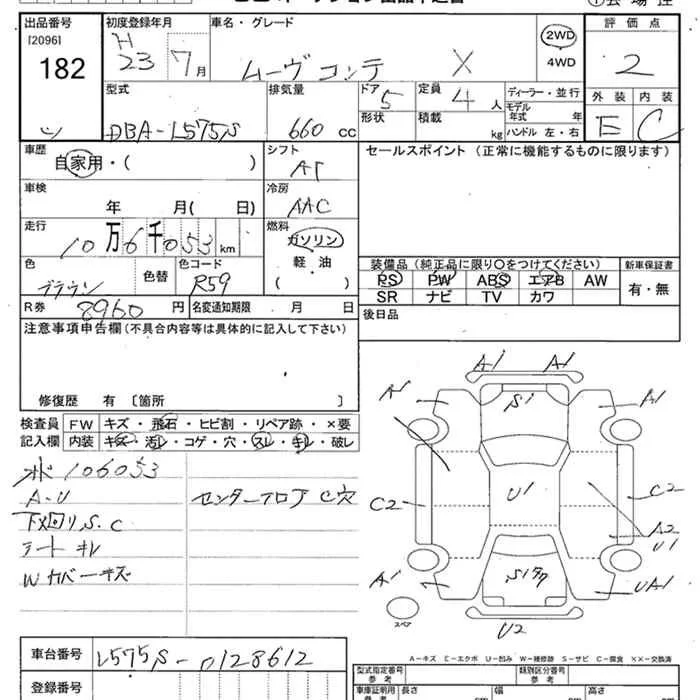 出品番号 初度登録年月 車名・グレード 評価点
[2096] H
182 23 7月 ムーヴ コンテ X 2WD 4WD 2
型式 排気量 ドア 定員 ディーラー・並行 外装 内装
DBA-L575S 660 cc 5 4 人 モデル年式 年 E C
形状 積載 kg ハンドル 左・右
車歴 シフト セールスポイント (正常に機能するものに限ります)
自家用・( ) AT
車検 冷房
年 月( 日) AAC
走行 燃料
10万6千053km ガソリン
軽・油
色 色替 色コード ( )
ブラウン R59
装備品 (純正品に限り〇をつけてください) 新車保証書
PS PW ABS エアB AW 有・無
SR ナビ TV カワ
R券 8960 円 名変通知期限 月 日 後日品
注意事項申告欄 (不具合内容等は具体的に記入して下さい)
修復歴 有 〔箇所 〕
検査員 FW キズ・飛石・ヒビ割・リペア跡・×要
記入欄 内装 キズ・汚レ・コゲ・穴・スレ・キレ・破レ
106053
A-U センターフロア C穴
下回りS.C
シートキレ
Wカバーキズ
A1 A1
A1 S1 A1
C2 U1 C2
A2
U1
A1 S1 UA1
スペア
U2
A-キズ E-エクボ U-凹み W-補修跡 S-サビ C-腐食 ××-交換済
車台番号 L575S-0128612
登録番号
型式指定番号 参考 類別区分番号 参考
車庫証明用 参考 長さ cm 幅 cm 高さ cm